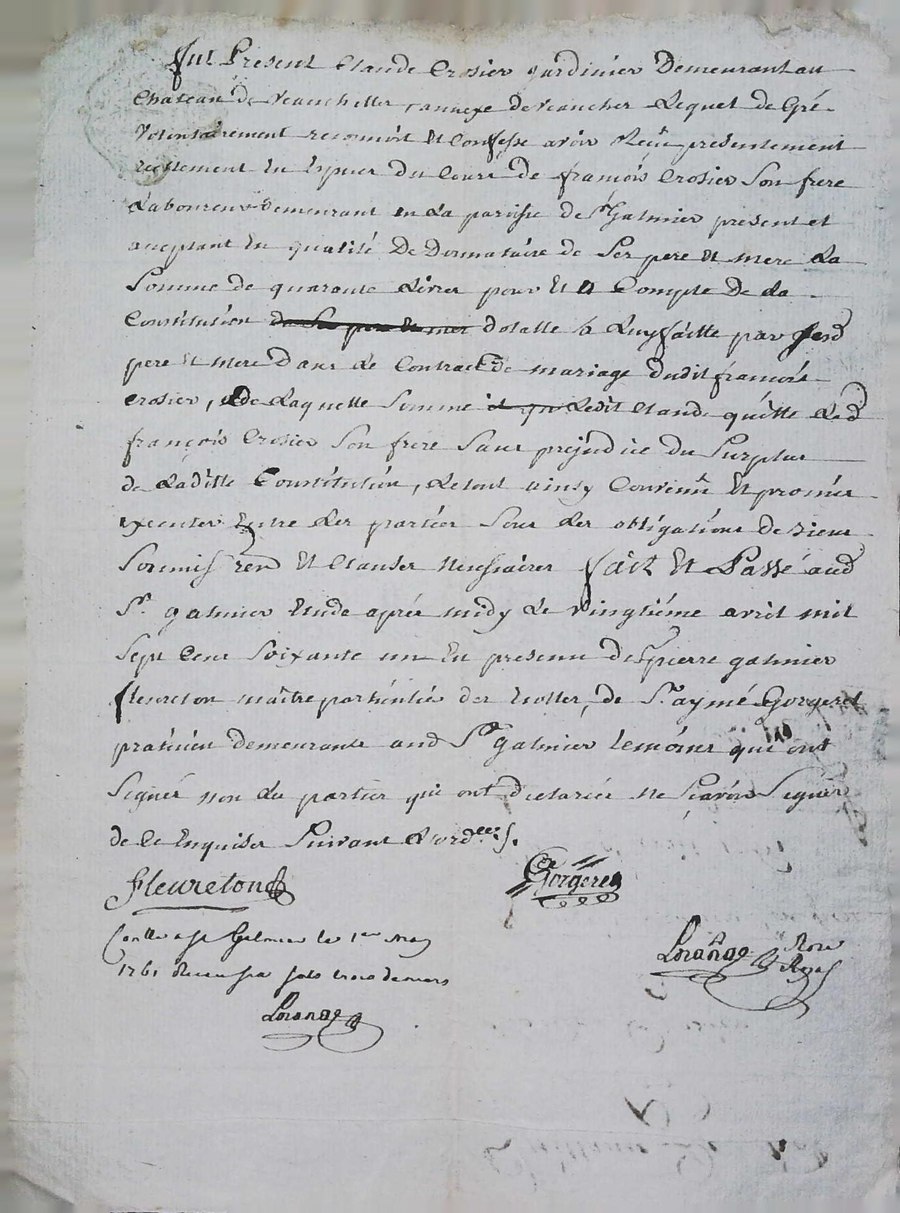 fut Present Claude Crosier Jardinier Demeurant au
Chateau de annexe de Veauche Lequel de Gré
Volontairement reconnoit Et Confesse avoir Reçu presentement
reellement En Espèces du Cours de françois Crosier Son frere
Laboureur Demeurant en La paroisse de St Galmier présent et
acceptant En qualité De Donnataire de Ses pere Et mere La
Somme de quarante Livres pour Et a Compte De La
Constitution de Ses pere Et mere dotalle a Luy faitte par Sesd
pere Et mere Dans Le Contract De mariage dudit françois
Crosier, de Laquelle Somme Ledit Claude quitte Led
françois Crosier Son frere Sans prejudice du Surplus
de Laditte Constitution, Le tout ainsy Convenu Et promis
executer Entre Les parties Sous Les obligations de
Soumis ren Et Clauses necessaires fait Et Passé aud
St galmier Etude après midy Le vingtième avril mil
Sept Cens Soixante un En presence de Sr pierre galmier
fleureton maître des de Sr aymé Gorgeret
praticien demeurants aud St galmier temoins qui ont
Signés non Les parties qui ont declarées ne Sçavoir Signer
de ce Enquises Suivant L'ordce.
Fleureton
Gorgeret
Contlle a St Galmier le 1er May
1761 Recu sols trois deniers
Lorange Nore Royal
Lorange